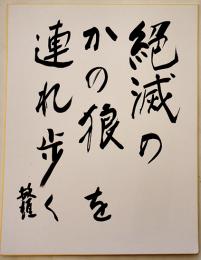 絶滅の
かの狼を
連れ歩く
敏雄